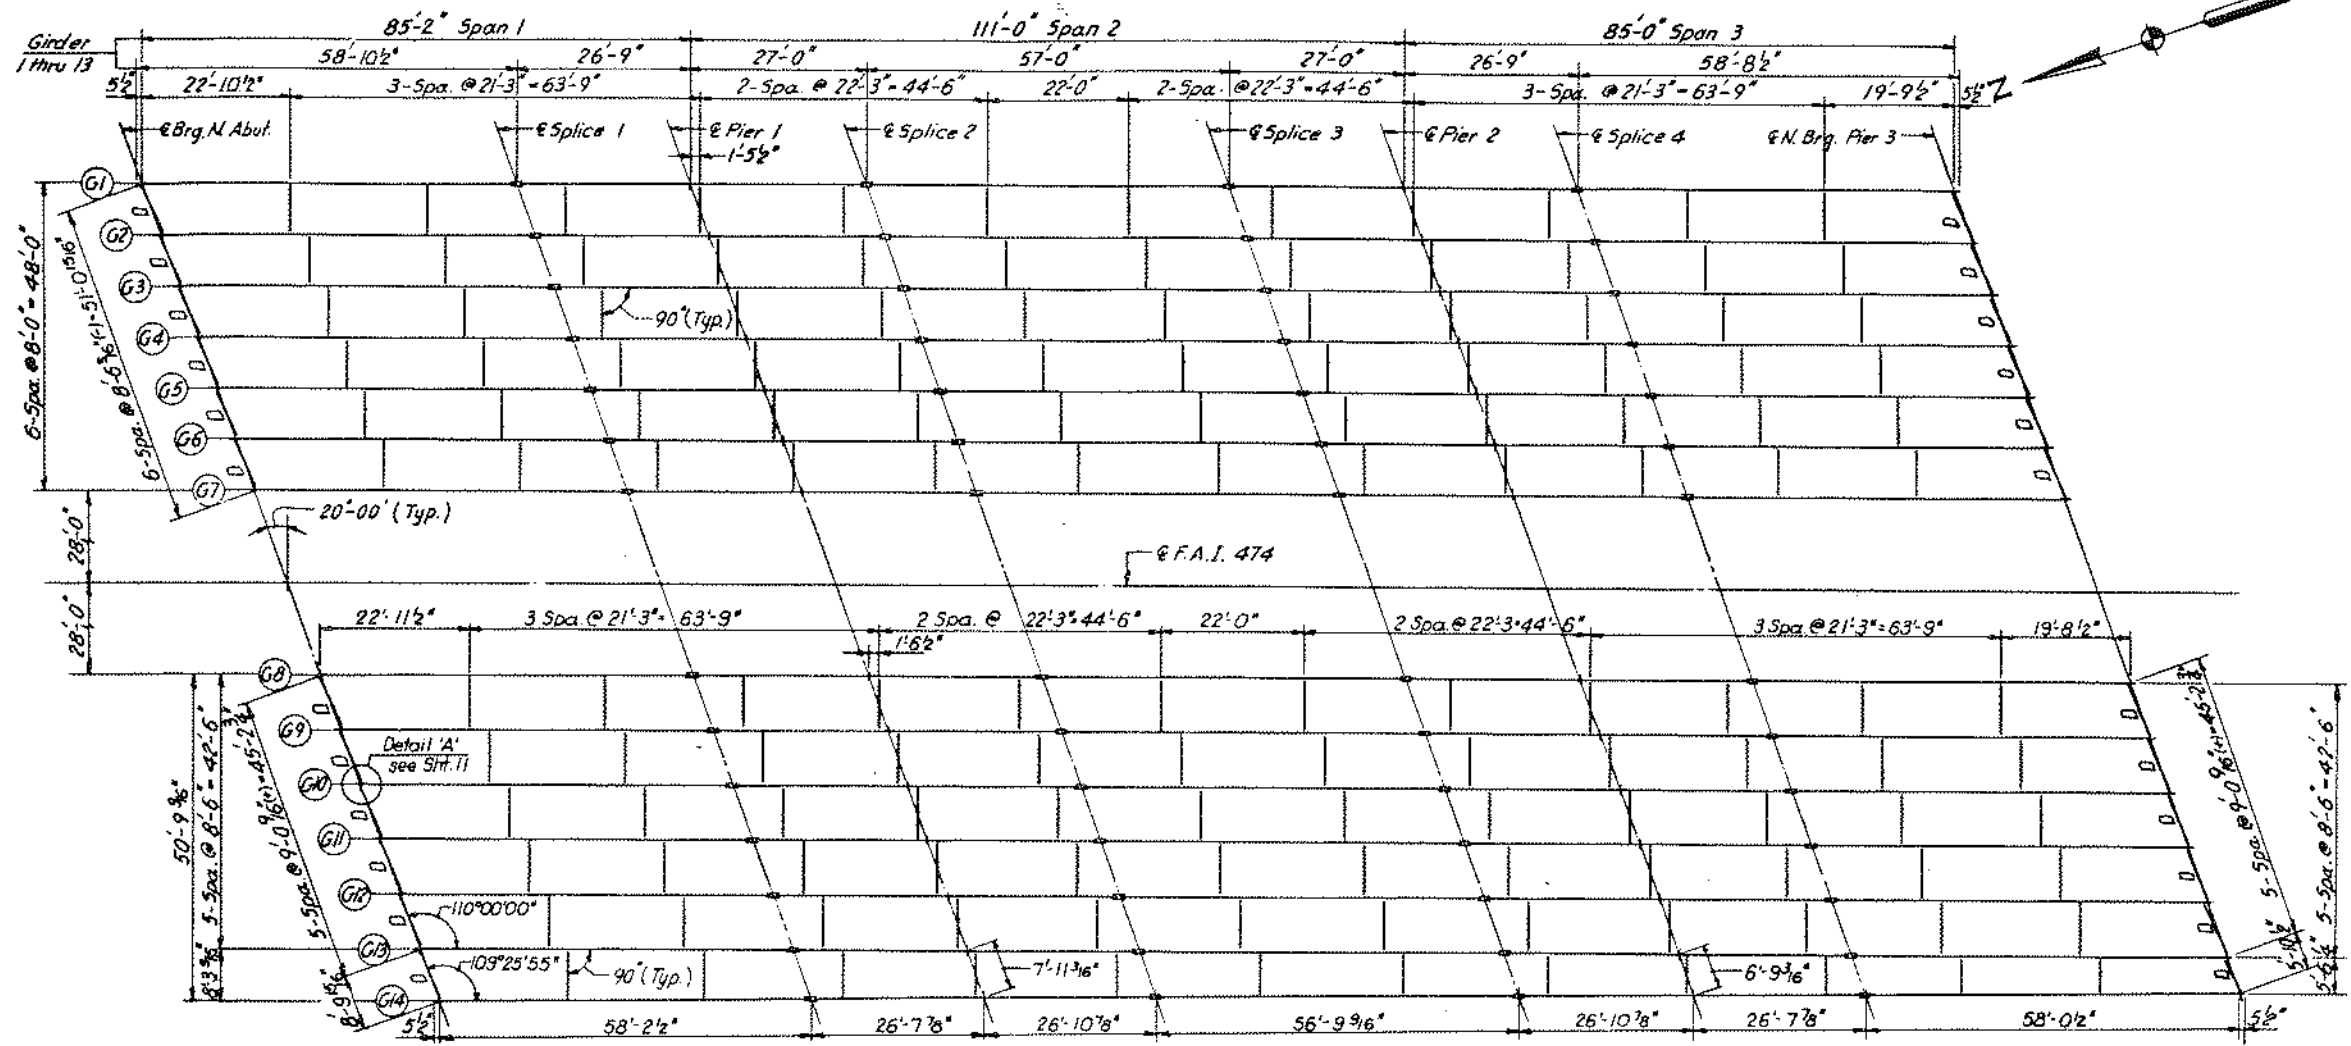 85'-2" Span 1
111'-0" Span 2
85'-0" Span 3
Girder
1 thru 13
58'-10½"
26'-9"
27'-0"
57'-0"
27'-0"
26'-9"
58'-8½"
5½"
22'-10½"
3-Spa. @ 21'-3" = 63'-9"
2-Spa. @ 22'-3" = 44'-6"
22'-0"
2-Spa. @ 22'-3" = 44'-6"
3-Spa. @ 21'-3" = 63'-9"
19'-9½"
5½"
N
℄ Brg. N. Abut.
℄ Splice 1
℄ Pier 1
℄ Splice 2
℄ Splice 3
℄ Pier 2
℄ Splice 4
℄ N. Brg. Pier 3
1'-5½"
G1
G2
G3
G4
G5
G6
G7
6-Spa. @ 8'-0" = 48'-0"
6-Spa. @ 8'-6 3/16"(-) = 51'-0 15/16"
90° (Typ.)
20°-00' (Typ.)
28'-0"
℄ F.A.I. 474
28'-0"
22'-11½"
3 Spa. @ 21'-3" = 63'-9"
2 Spa. @ 22'-3" = 44'-6"
22'-0"
2 Spa. @ 22'-3" = 44'-6"
3 Spa. @ 21'-3" = 63'-9"
19'-8½"
1'-6½"
G8
G9
G10
G11
G12
G13
G14
Detail 'A'
see Sht. 11
50'-9 9/16"
5-Spa. @ 8'-6" = 42'-6"
8'-3 9/16"
5-Spa. @ 9'-0 9/16"(+) = 45'-2¾"
8'-9 15/16"
110°00'00"
109°25'55"
90° (Typ.)
7'-11 3/16"
6'-9 3/16"
5-Spa. @ 9'-0 9/16"(+) = 45'-2¾"
5'-10½"
5-Spa. @ 8'-6" = 42'-6"
5'-6¼"
5½"
58'-2½"
26'-7⅞"
26'-10⅞"
56'-9 9/16"
26'-10⅞"
26'-7⅞"
58'-0½"
5½"